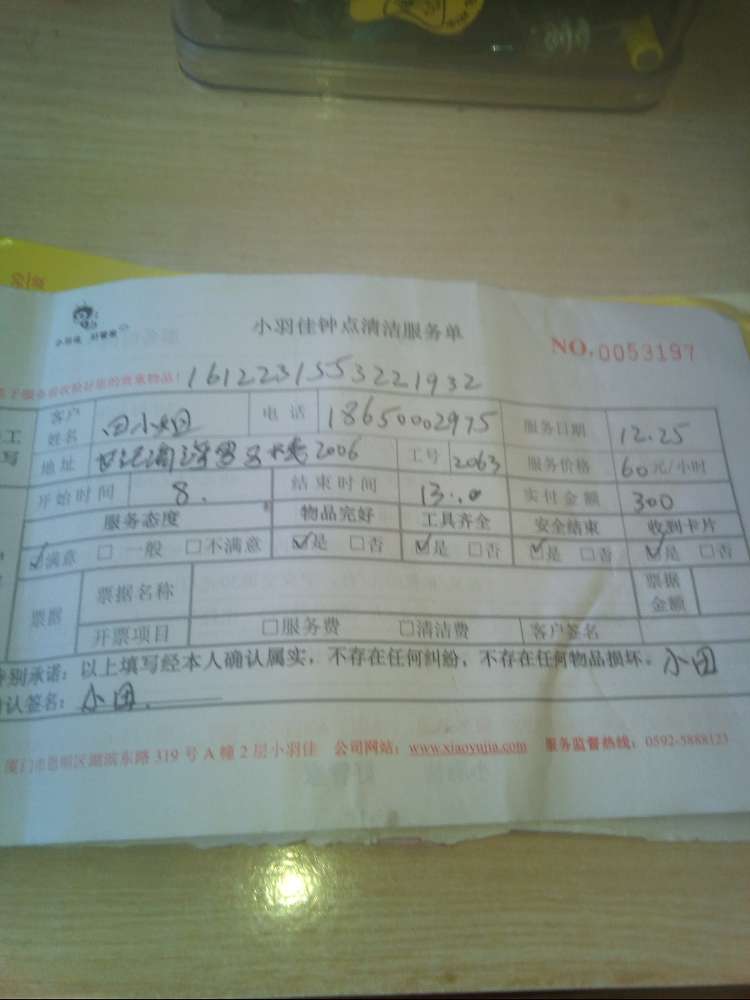 小羽佳 好管家
小羽佳钟点清洁服务单
NO.0053197
1612231553221932
客户姓名 田小姐 电话 18650002975 服务日期 12.25
地址 2006 工号 2063 服务价格 60元/小时
开始时间 8. 结束时间 13:.0 实付金额 300
服务态度 物品完好 工具齐全 安全结束 收到卡片
☑满意 □一般 □不满意 ☑是 □否 ☑是 □否 ☑是 □否 ☑是 □否
票据 票据名称 票据金额
开票项目 □服务费 □清洁费 客户签名
特别承诺：以上填写经本人确认属实，不存在任何纠纷，不存在任何物品损坏。小田
确认签名：小田.
厦门市思明区湖滨东路319号A幢2层小羽佳 公司网站：www.xiaoyujia.com 服务监督热线：0592-5888123